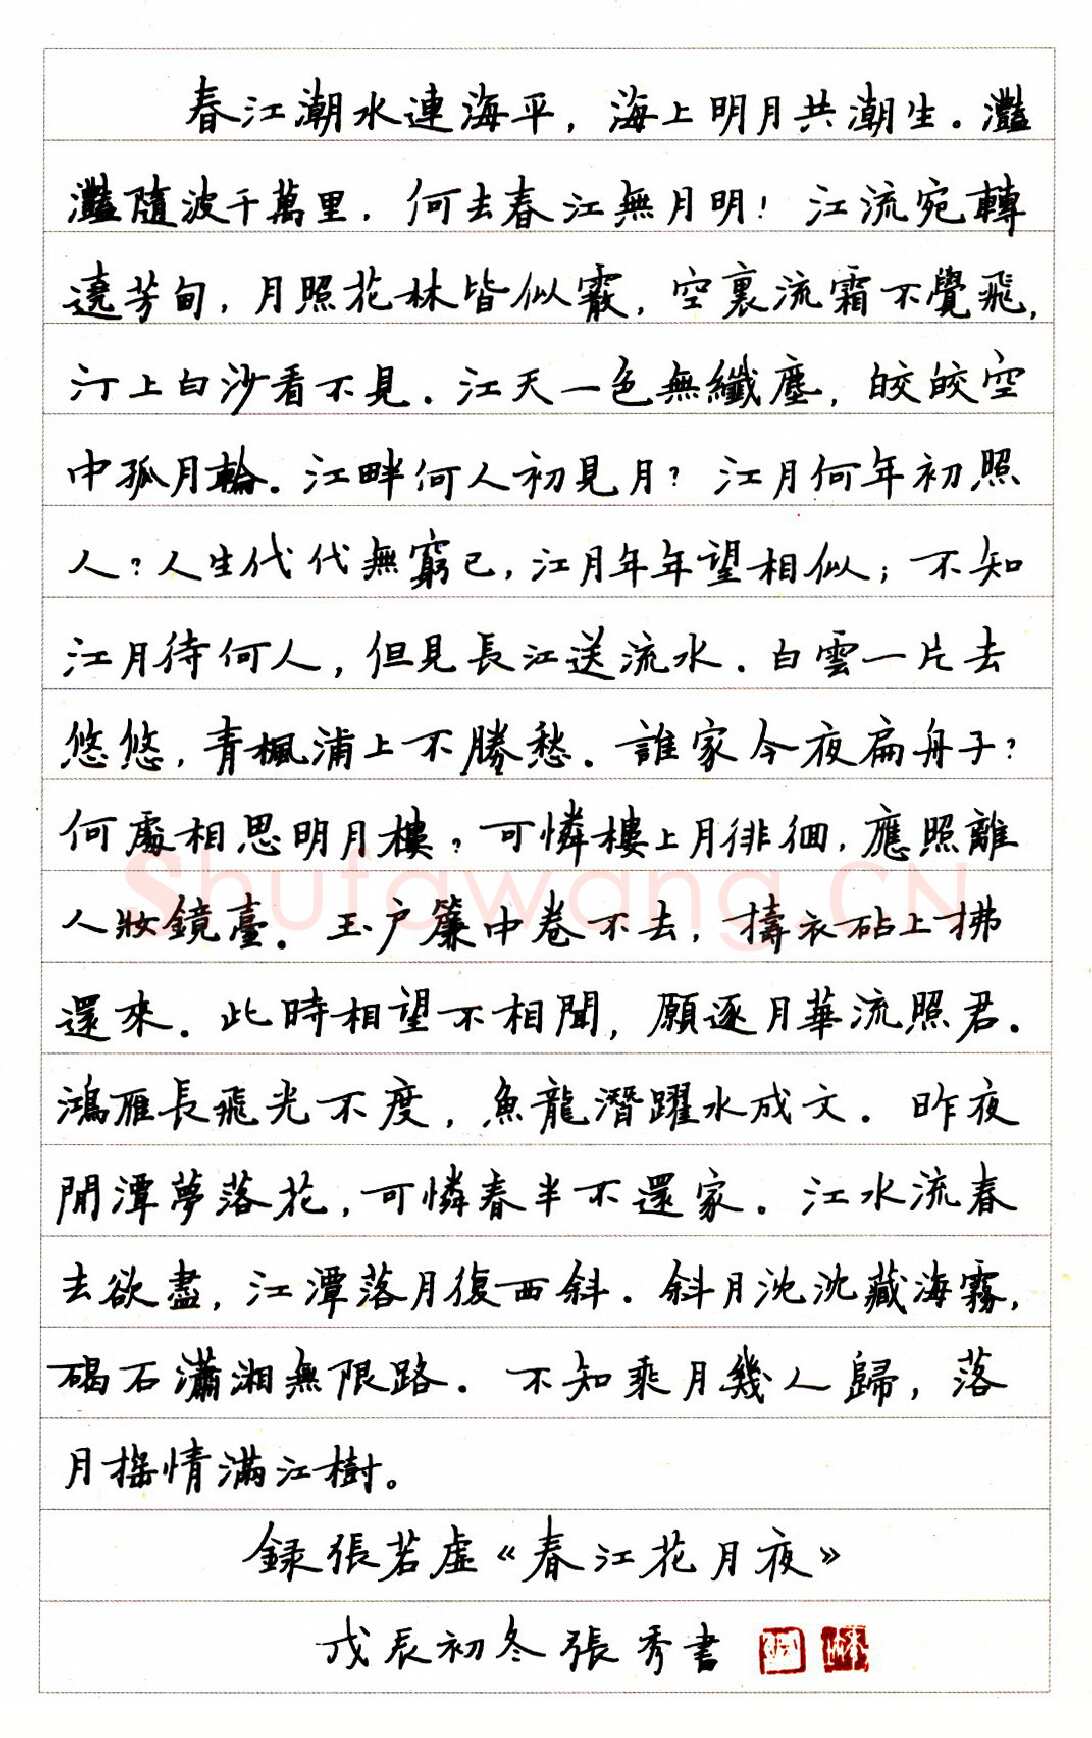 春江潮水連海平，海上明月共潮生。灩
灩隨波千萬里．何去春江無月明！江流宛轉
遶芳甸，月照花林皆似霰，空裏流霜不覺飛，
汀上白沙看不見．江天一色無纖塵，皎皎空
中孤月輪．江畔何人初見月？江月何年初照
人？人生代代無窮已，江月年年望相似；不知
江月待何人，但見長江送流水．白雲一片去
悠悠，青楓浦上不勝愁．誰家今夜扁舟子？
何處相思明月樓？可憐樓上月徘徊，應照離
人妝鏡臺．玉户簾中卷不去，擣衣砧上拂
還來．此時相望不相聞，願逐月華流照君．
鴻雁長飛光不度，魚龍潛躍水成文．昨夜
閒潭夢落花，可憐春半不還家．江水流春
去欲盡，江潭落月復西斜．斜月沈沈藏海霧，
碣石瀟湘無限路．不知乘月幾人歸，落
月搖情滿江樹。
録張若虛《春江花月夜》
戊辰初冬張秀書
Shufawang.CN